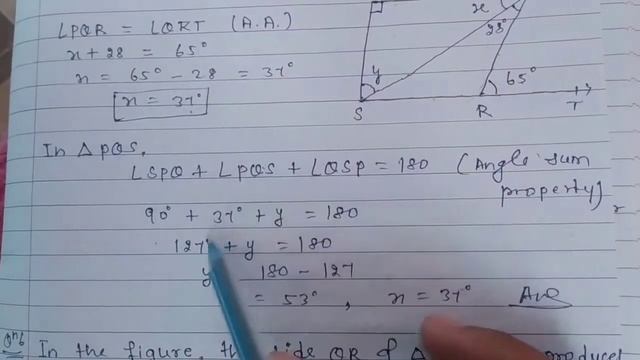 ∠PQR = ∠QRT (A.A.)
x + 28 = 65°
x = 65° - 28 = 37°
x = 37°
x
28°
y
65°
S
R
T
In △PQS,
∠SPQ + ∠PQS + ∠QSP = 180 (Angle sum
property)
90° + 37° + y = 180
127° + y = 180
y 180 - 127
= 53°, x = 37° Ans
Qn6 In the figure, the side QR of △